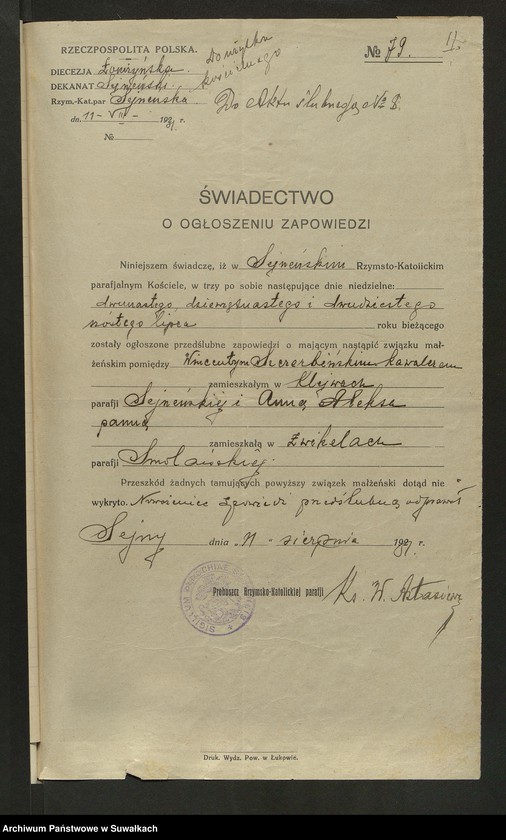 RZECZPOSPOLITA POLSKA.
DIECEZJA Łomżyńska
DEKANAT Sejneński
Rzym.-Kat.par Sejneńska
dn. 11 - VIII - 1931 r.
№
Do użytku
kościelnego
№ 79.
11.
Do Aktu ślubnego № 8.
ŚWIADECTWO
O OGŁOSZENIU ZAPOWIEDZI
Niniejszem świadczę, iż w Sejneńskim Rzymsto-Katolickim
parafjalnym Kościele, w trzy po sobie następujące dnie niedzielne:
dwunastego, dziewiętnastego i dwudziestego
szóstego lipca roku bieżącego
zostały ogłoszone przedślubne zapowiedzi o mającym nastąpić związku mał-
żeńskim pomiędzy Wincentym Szczerbińskim kawalerem
zamieszkałym w Klejwach
parafji Sejneńskiej i Anną Aleksa
panną
zamieszkałą w Żwikelach
parafji Smolańskiej.
Przeszkód żadnych tamujących powyższy związek małżeński dotąd nie
wykryto. spowiedź przedślubną odprawił
Sejny dnia 11 - sierpnia 1931 r.
Proboszcz Rzymsko-Katolickiej parafji Ks. W. Astasiewicz
SIGILLUM
Druk. Wydz. Pow. w Łukowie.
Archiwum Państwowe w Suwałkach